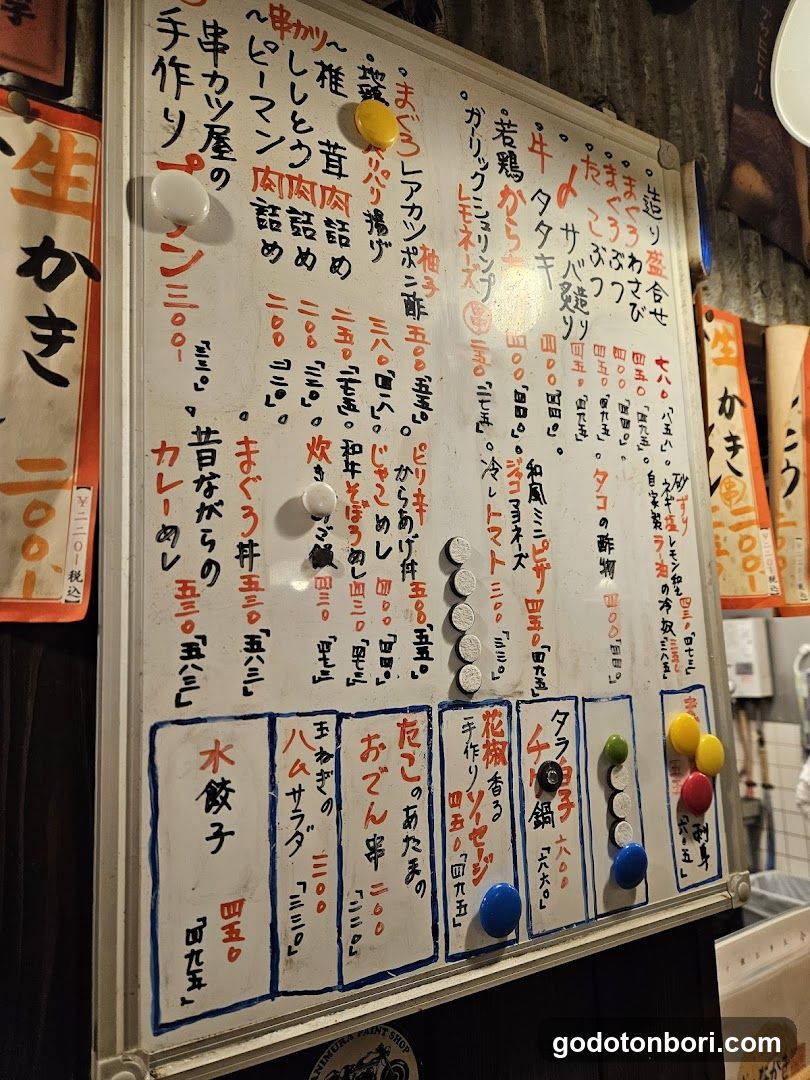 造り盛合せ 七八〇「八五八」
まぐろわさび 四五〇「四九五」
まぐろぶつ 四〇〇「四四〇」
たこぶつ 四五〇「四九五」
〆サバ造り炙り 四五〇「四九五」
牛タタキ 四〇〇「四四〇」
若鶏から 四〇〇「四四〇」
ガーリックシュリンプ
レモネーズ 串 二五〇「二七五」
まぐろレアカツ柚子ポン酢 五〇〇「五五〇」
地鶏 パリパリ揚げ 三八〇「四一八」
〜串カツ〜
椎茸肉詰め 二五〇「二七五」
ししとう肉詰め 二〇〇「二二〇」
ピーマン肉詰め 二〇〇「二二〇」
串カツ屋の
手作りプ ン 三〇〇「三三〇」
砂ずり
ネギ塩レモン和え 四三〇「四七三」
自家製ラー油の冷奴 三五〇「三八五」
タコの酢物 四〇〇「四四〇」
和風ミニピザ
ジャコマヨネーズ 四五〇「四九五」
冷しトマト 三〇〇「三三〇」
ピリ辛からあげ丼 五〇〇「五五〇」
じゃこめし 四〇〇「四四〇」
和牛そぼろめし 四三〇「四七三」
炊き ご飯 四三〇「四七三」
まぐろ丼 五三〇「五八三」
昔ながらの
カレーめし 五三〇「五八三」
刺身 「六〇五」
タラ白子
チゲ鍋 六〇〇「六六〇」
花椒香る
手作りソーセージ 四五〇「四九五」
たこのあたまの
おでん串 二〇〇「二二〇」
玉ねぎの
ハムサラダ 三〇〇「三三〇」
水餃子 四五〇「四九五」
生かき
二〇〇
¥二二〇-税込
生かき
串 二〇〇
¥二二〇-税込
ANIMURA PAINT SHOP
godotonbori.com